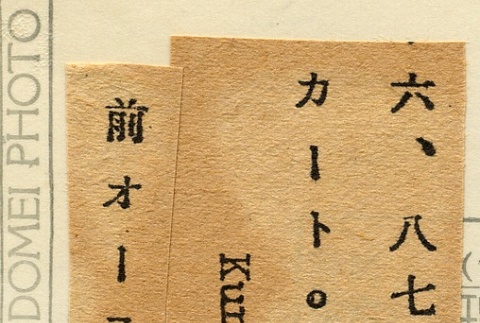 六、八七
カート。
Kun
前オー
DOMEI PHOTO